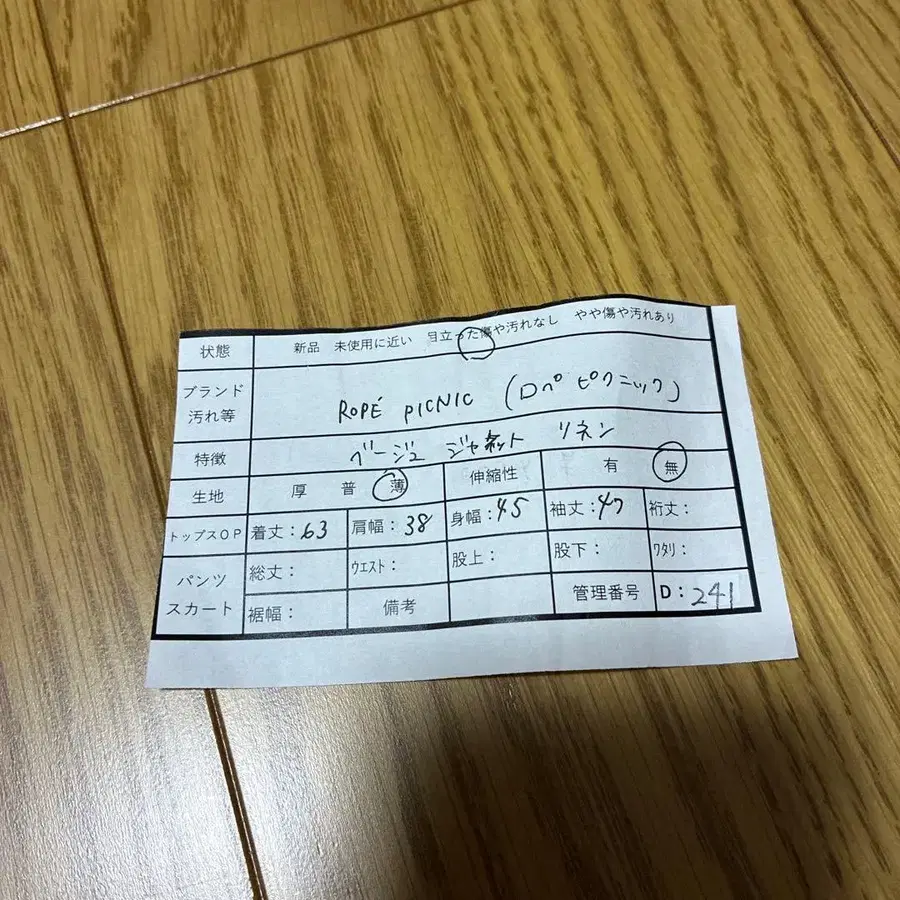 状態 新品 未使用に近い 目立った傷や汚れなし やや傷や汚れあり
ブランド
汚れ等 ROPÉ PICNIC (ロペ ピクニック)
特徴 ベージュ ジャケット リネン
生地 厚 普 薄 伸縮性 有 無
トップスOP 着丈:63 肩幅:38 身幅:45 袖丈:47 裄丈:
パンツ
スカート 総丈: ウエスト: 股上: 股下: ワタリ:
裾幅: 備考 管理番号 D:241